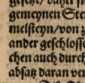 geseßt/ das
gemeynen Ste
melsteyn/von
ander geschlosse
chen auch durch
absatz daran ver